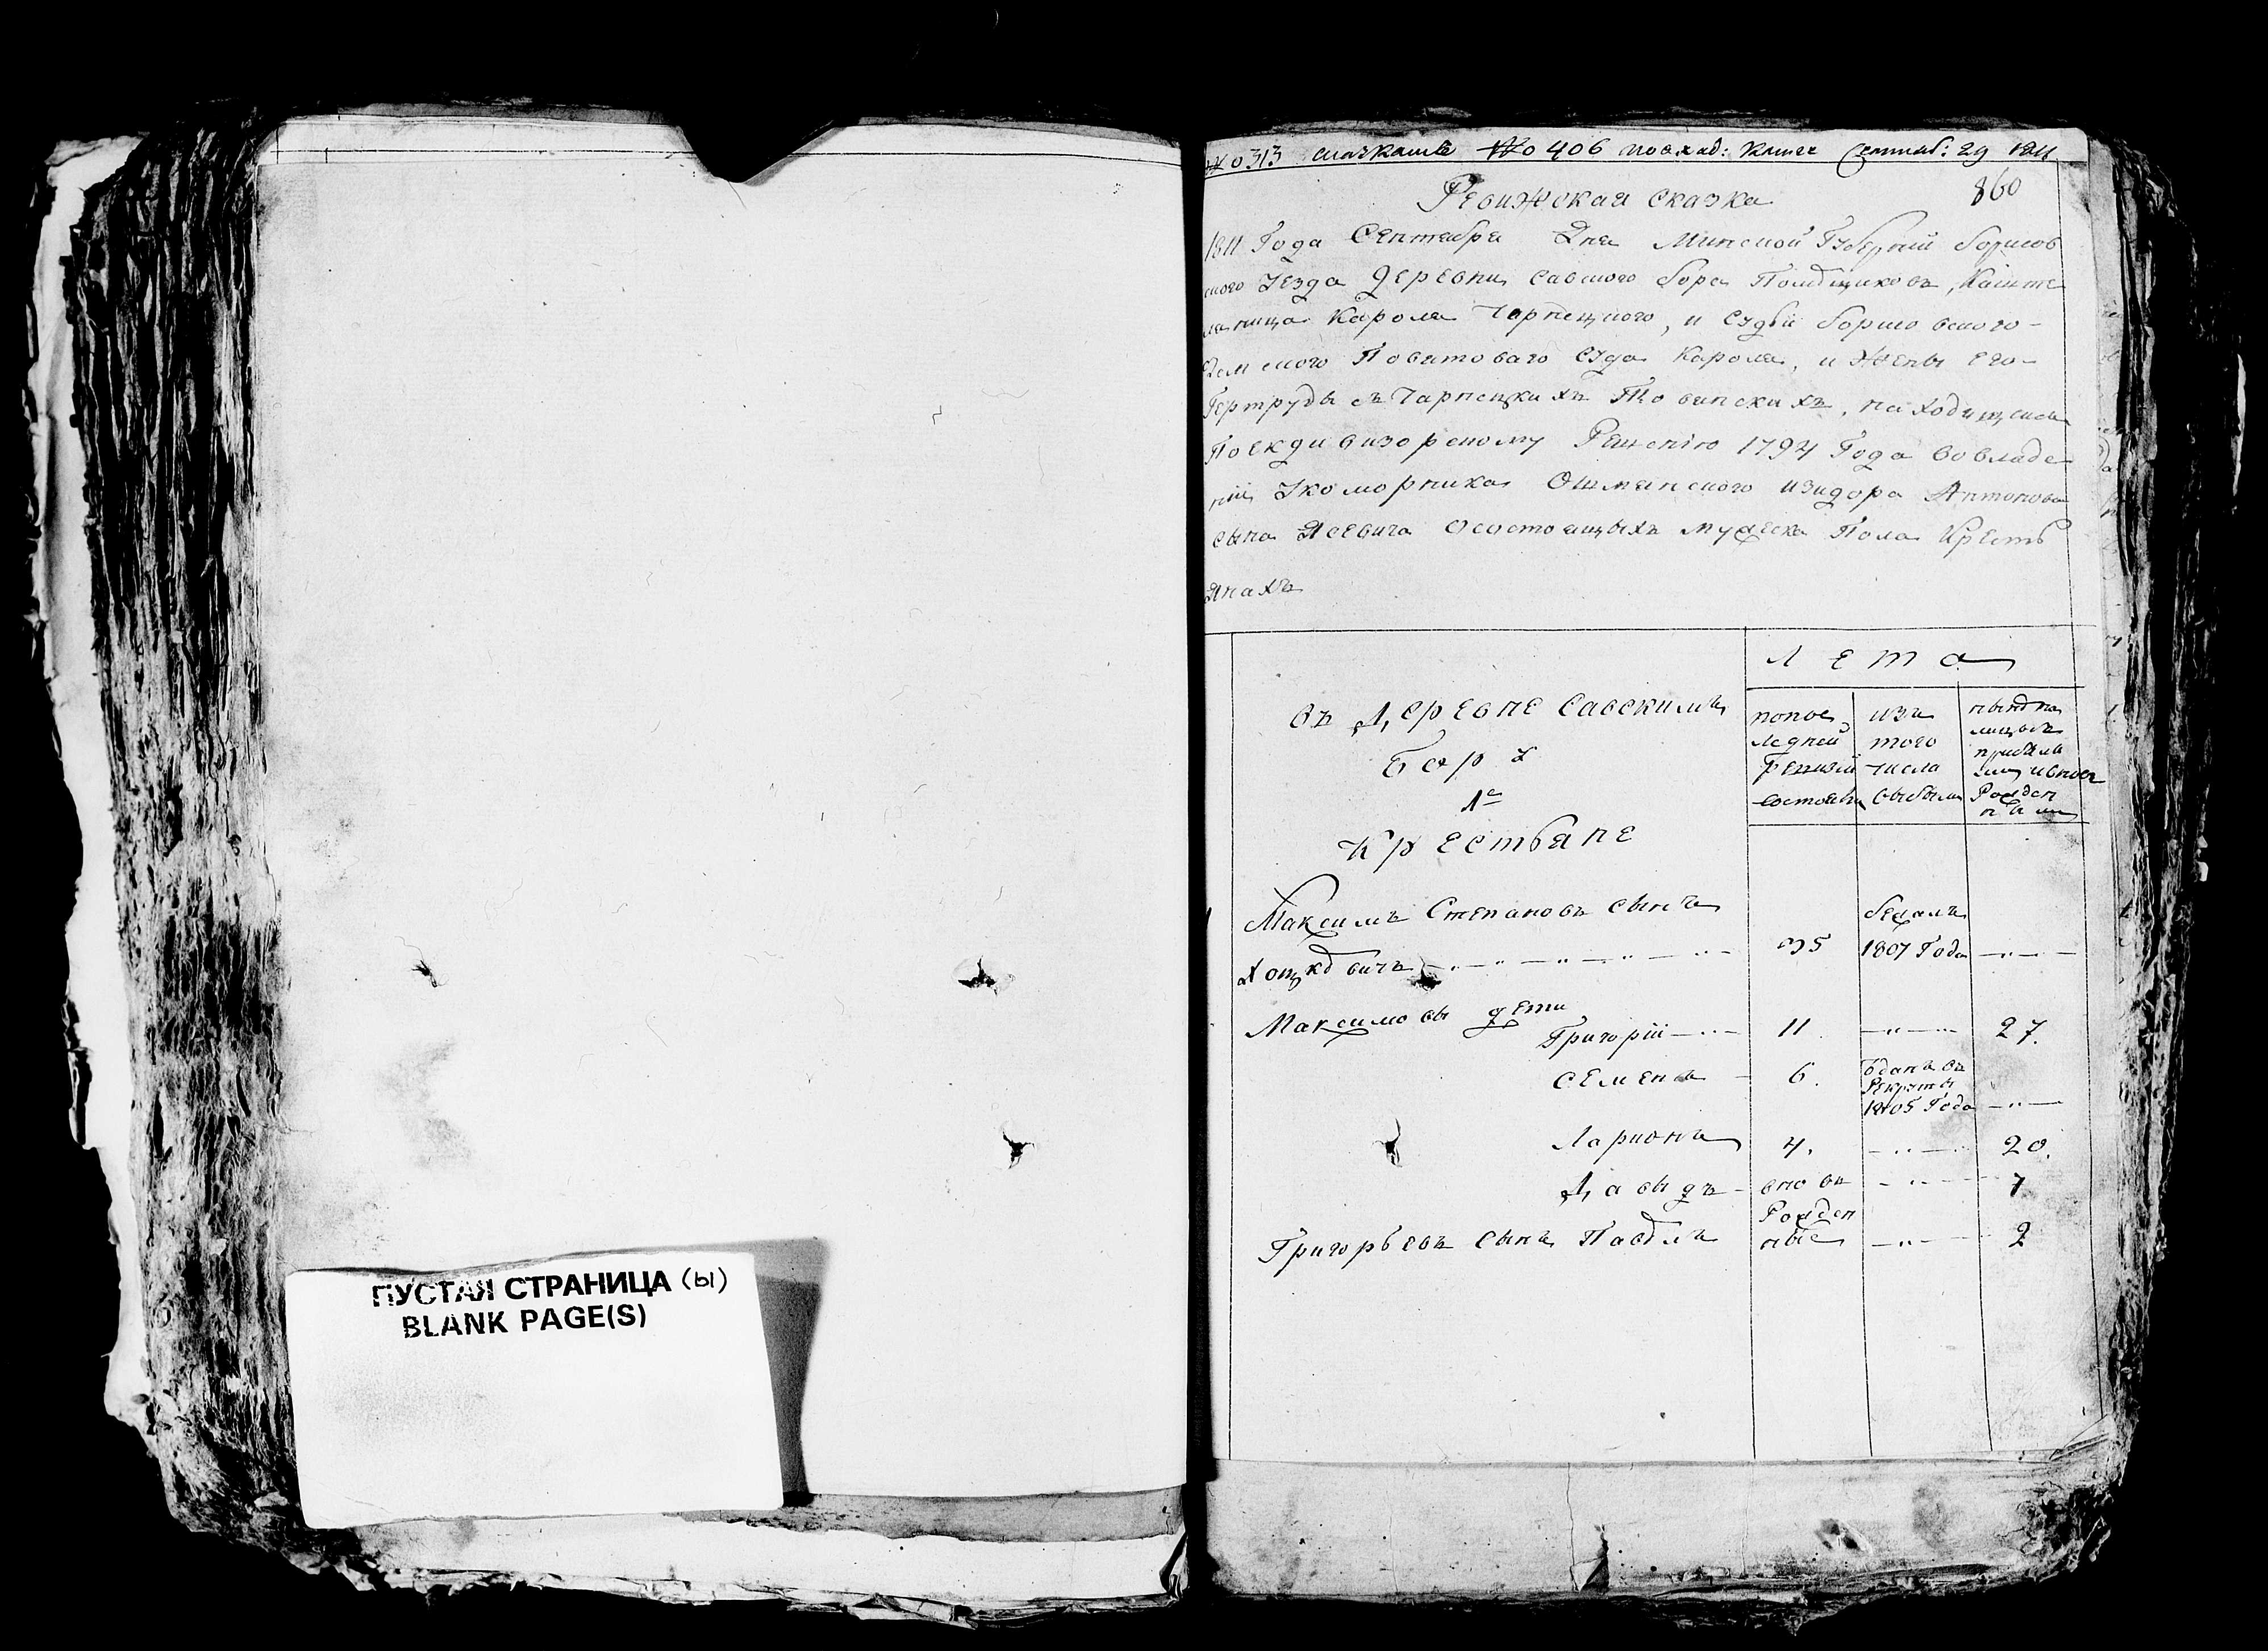 ПУСТАЯ СТРАНИЦА (ы)
BLANK PAGE(S)
№ 313 № 406 Сентяб: 29 1811
860
Ревижская сказка
1811 Года Сентября Дня Минской Губернии Борисов
ского Уезда Деревни Савского бора Помещиков,
Кароля Чарнецкого, и Судьи борисовского
Земского Поветоваго Суда Кароля, и Жены Его
Гертруды съ Чарнецкихъ находящейся
По Екдивизорскому Решению 1794 Года во владе
нии Ошмянского Изидора Антонова
сына Ясевича О состоящыхъ мужеска Пола Кресть
янахъ
Лета
въ Деревне Савскимъ
Бору
1е
Крестьяне
попос
ледней
Ревизии
состояли
изъ
того
числа
выбыли
Максимъ Степановъ сынъ
бежалъ
35 1807 Года
Максимовы дети
Григорий 11. 27.
Семенъ 6. Одан въ
Рекруты
1805 Года
Ларионъ 4. 20.
Давыдъ вновь 7
Рожден
Григорьевъ сынъ Павелъ ные 2